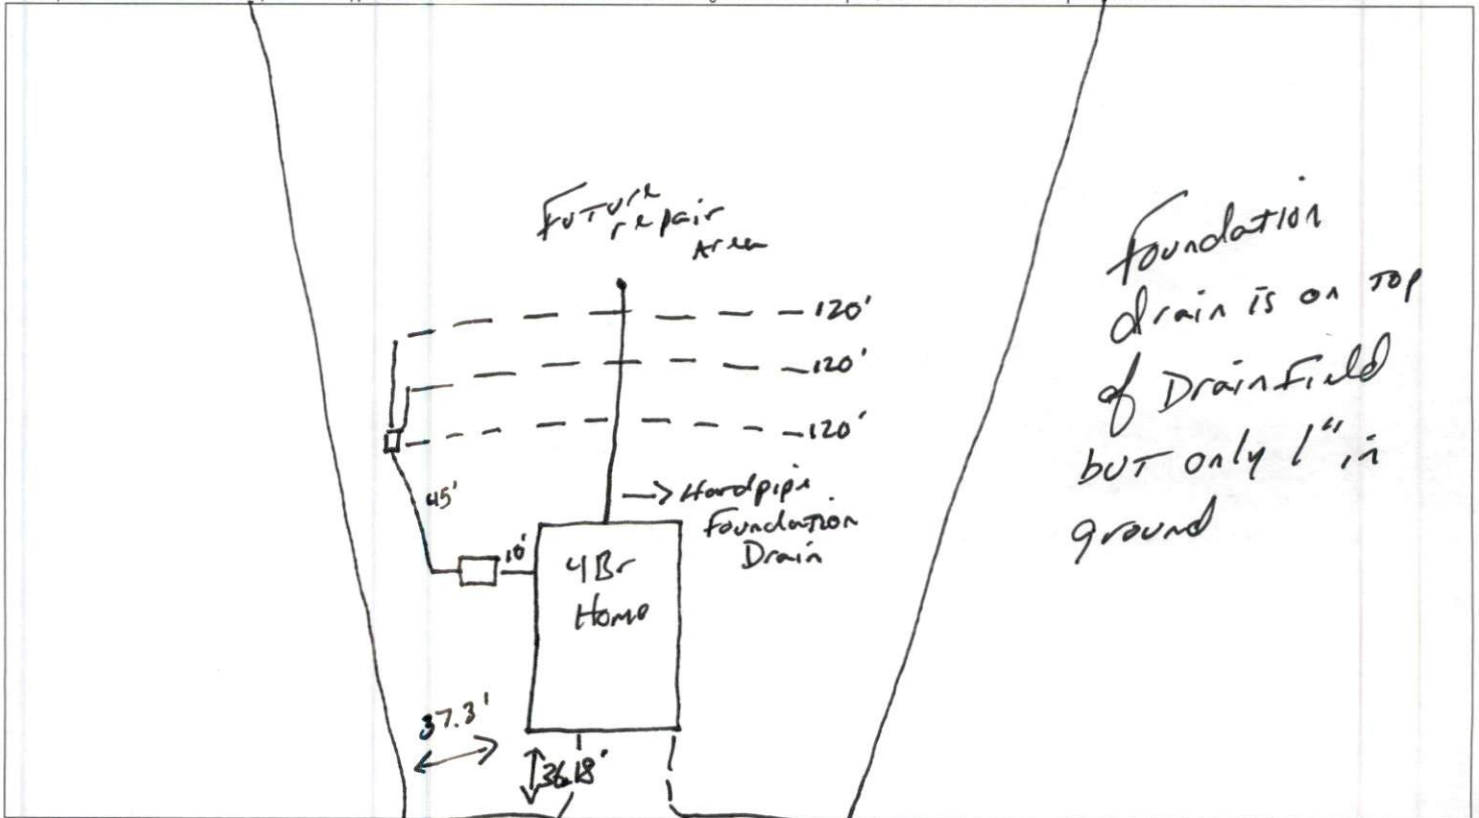 Future
repair
Area
120'
120'
120'
45'
10'
→ Hardpipe
Foundation
Drain
4Br
Home
37.3'
36.18'
Foundation
drain is on top
of Drainfield
but only 1" in
ground